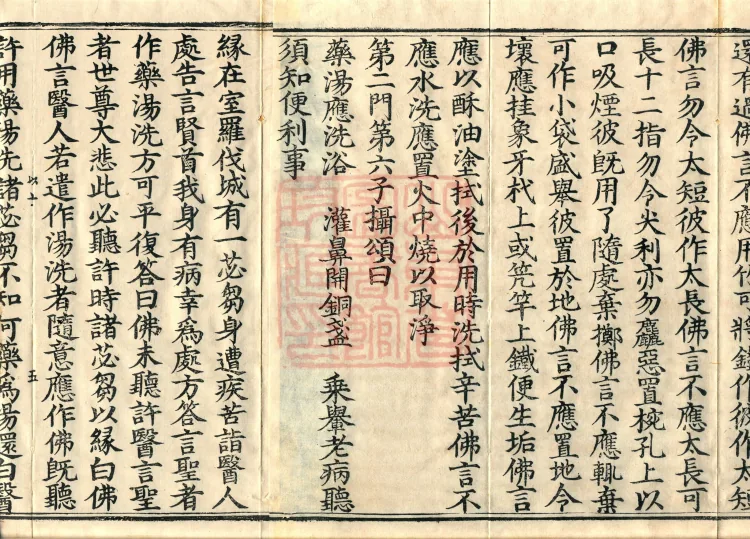 有過佛言不應用可將鐵作彼作太短
佛言勿令太短彼作太長佛言不應太長可
長十二指勿令尖利亦勿麤惡置椀孔上以
口吸煙彼旣用了隨處棄擲佛言不應輒棄
可作小袋盛舉彼置於地佛言不應置地令
壞應挂象牙杙上或笐竿上鐵便生垢佛言
應以酥油塗拭後於用時洗拭辛苦佛言不
應水洗應置火中燒以取淨
第二門第六子攝頌曰
藥湯應洗浴　灌鼻開銅盞　乘轝老病聽
須知便利事
緣在室羅伐城有一苾芻身遭疾苦詣醫人
處告言賢首我身有病幸爲處方答言聖者
作藥湯洗方可平復答曰佛未聽許醫言聖
者世尊大悲此必聽許時諸苾芻以緣白佛
佛言醫人若遣作湯洗者隨意應作佛旣聽
以十　五
許用藥湯洗諸苾芻不知何藥爲湯還白醫